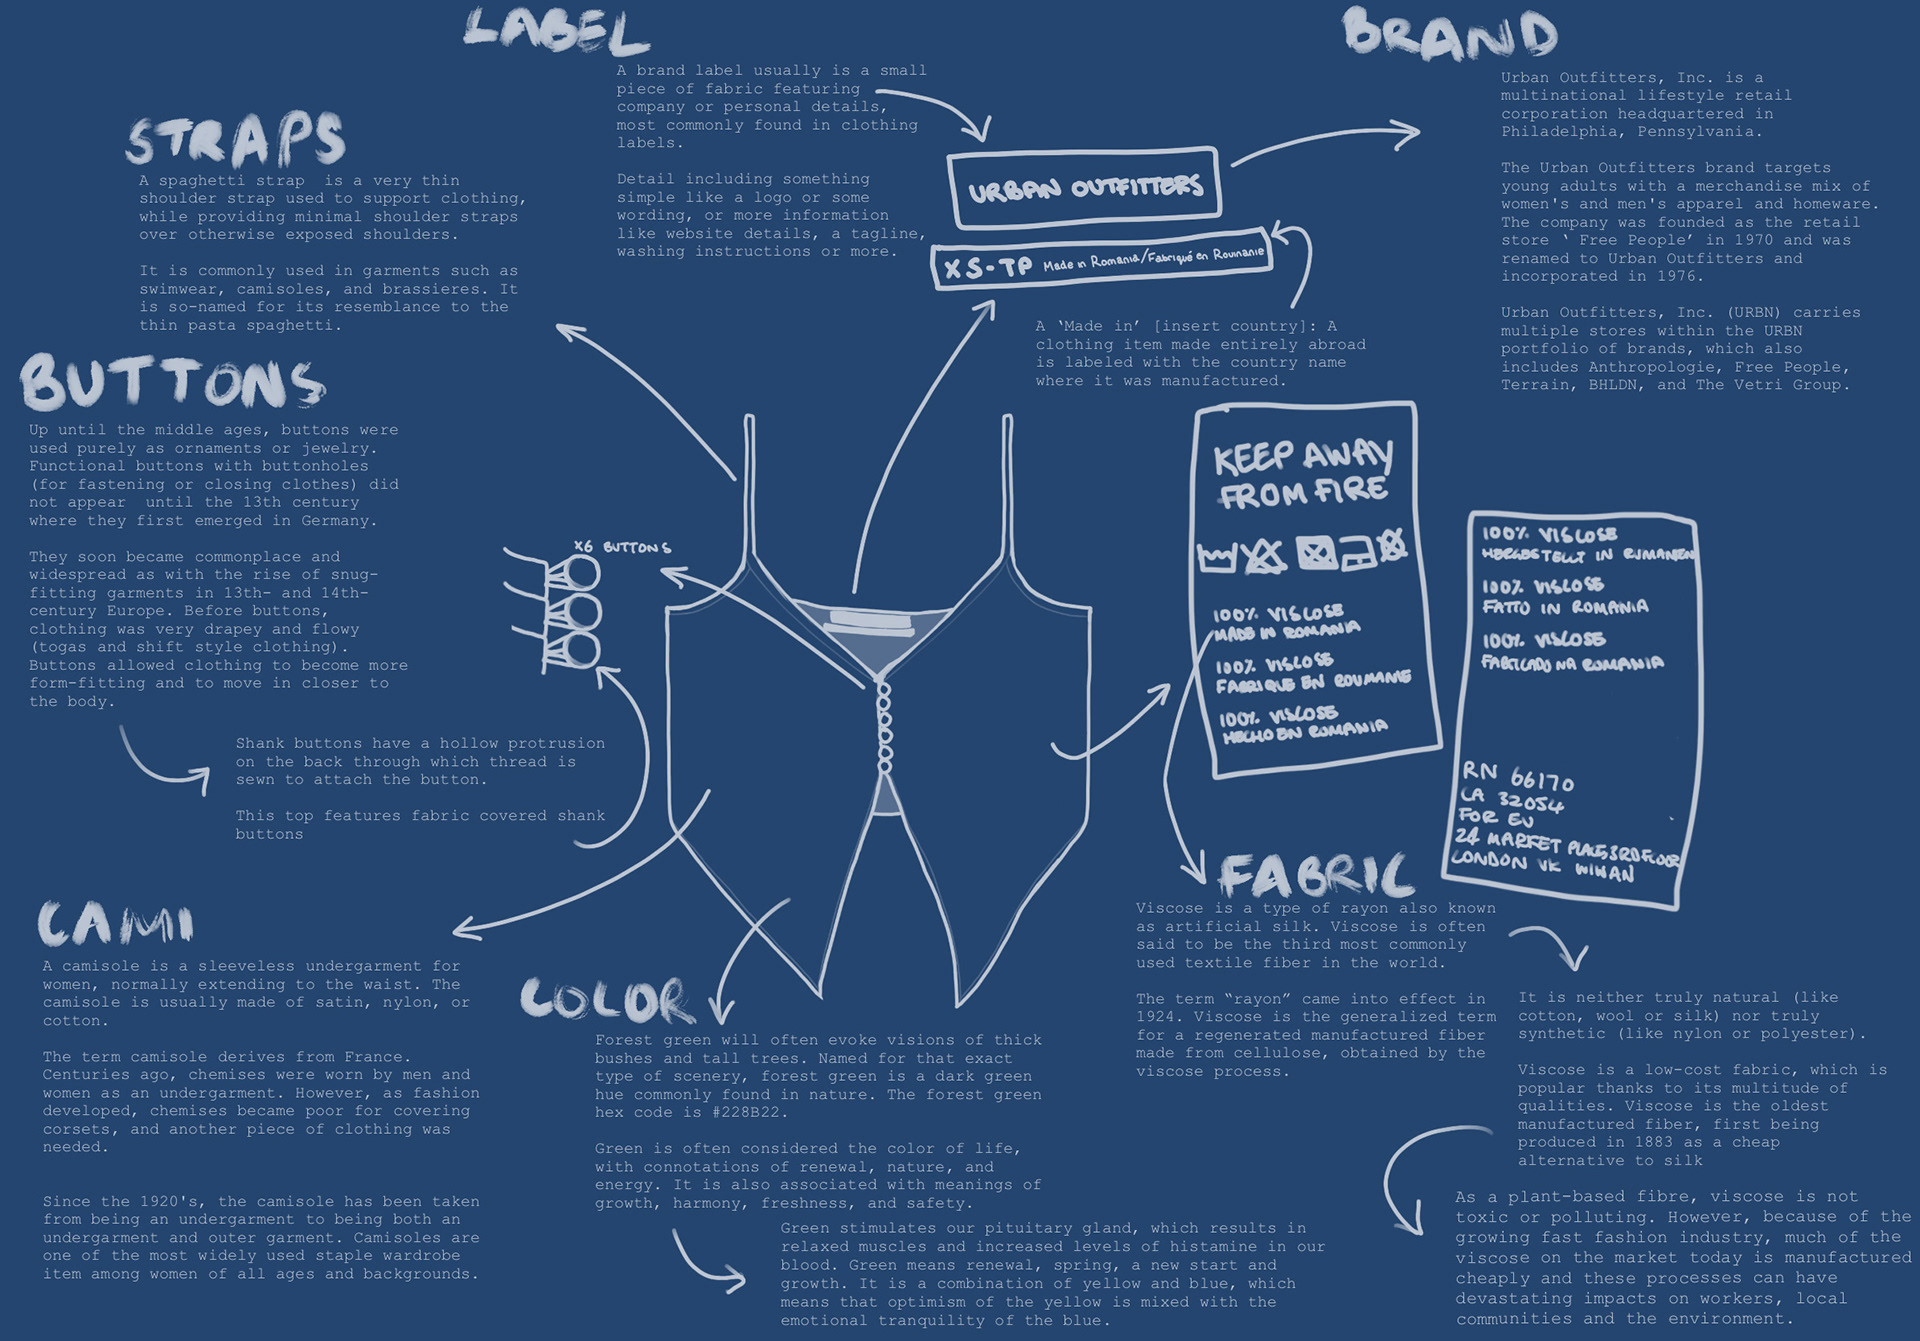 LABEL
A brand label usually is a small
piece of fabric featuring
company or personal details,
most commonly found in clothing
labels.
Detail including something
simple like a logo or some
wording, or more information
like website details, a tagline,
washing instructions or more.
URBAN OUTFITTERS
XS-TP Made in Romania/Fabriqué en Roumanie
A ‘Made in’ [insert country]: A
clothing item made entirely abroad
is labeled with the country name
where it was manufactured.
BRAND
Urban Outfitters, Inc. is a
multinational lifestyle retail
corporation headquartered in
Philadelphia, Pennsylvania.
The Urban Outfitters brand targets
young adults with a merchandise mix of
women's and men's apparel and homeware.
The company was founded as the retail
store ‘ Free People’ in 1970 and was
renamed to Urban Outfitters and
incorporated in 1976.
Urban Outfitters, Inc. (URBN) carries
multiple stores within the URBN
portfolio of brands, which also
includes Anthropologie, Free People,
Terrain, BHLDN, and The Vetri Group.
STRAPS
A spaghetti strap is a very thin
shoulder strap used to support clothing,
while providing minimal shoulder straps
over otherwise exposed shoulders.
It is commonly used in garments such as
swimwear, camisoles, and brassieres. It
is so-named for its resemblance to the
thin pasta spaghetti.
BUTTONS
Up until the middle ages, buttons were
used purely as ornaments or jewelry.
Functional buttons with buttonholes
(for fastening or closing clothes) did
not appear until the 13th century
where they first emerged in Germany.
They soon became commonplace and
widespread as with the rise of snug-
fitting garments in 13th- and 14th-
century Europe. Before buttons,
clothing was very drapey and flowy
(togas and shift style clothing).
Buttons allowed clothing to become more
form-fitting and to move in closer to
the body.
X6 BUTTONS
Shank buttons have a hollow protrusion
on the back through which thread is
sewn to attach the button.
This top features fabric covered shank
buttons
KEEP AWAY
FROM FIRE
100% VISCOSE
MADE IN ROMANIA
100% VISCOSE
FABRIQUE EN ROUMANIE
100% VISCOSE
HECHO EN ROMANIA
100% VISCOSE
HERGESTELLT IN RUMANIEN
100% VISCOSE
FATTO IN ROMANIA
100% VISCOSE
FABRICADO NA ROMANIA
RN 66170
CA 32054
FOR EU
24 MARKET PLACE, 3RD FLOOR
LONDON UK W1W8AN
CAMI
A camisole is a sleeveless undergarment for
women, normally extending to the waist. The
camisole is usually made of satin, nylon, or
cotton.
The term camisole derives from France.
Centuries ago, chemises were worn by men and
women as an undergarment. However, as fashion
developed, chemises became poor for covering
corsets, and another piece of clothing was
needed.
Since the 1920's, the camisole has been taken
from being an undergarment to being both an
undergarment and outer garment. Camisoles are
one of the most widely used staple wardrobe
item among women of all ages and backgrounds.
COLOR
Forest green will often evoke visions of thick
bushes and tall trees. Named for that exact
type of scenery, forest green is a dark green
hue commonly found in nature. The forest green
hex code is #228B22.
Green is often considered the color of life,
with connotations of renewal, nature, and
energy. It is also associated with meanings of
growth, harmony, freshness, and safety.
Green stimulates our pituitary gland, which results in
relaxed muscles and increased levels of histamine in our
blood. Green means renewal, spring, a new start and
growth. It is a combination of yellow and blue, which
means that optimism of the yellow is mixed with the
emotional tranquility of the blue.
FABRIC
Viscose is a type of rayon also known
as artificial silk. Viscose is often
said to be the third most commonly
used textile fiber in the world.
The term “rayon” came into effect in
1924. Viscose is the generalized term
for a regenerated manufactured fiber
made from cellulose, obtained by the
viscose process.
It is neither truly natural (like
cotton, wool or silk) nor truly
synthetic (like nylon or polyester).
Viscose is a low-cost fabric, which is
popular thanks to its multitude of
qualities. Viscose is the oldest
manufactured fiber, first being
produced in 1883 as a cheap
alternative to silk
As a plant-based fibre, viscose is not
toxic or polluting. However, because of the
growing fast fashion industry, much of the
viscose on the market today is manufactured
cheaply and these processes can have
devastating impacts on workers, local
communities and the environment.